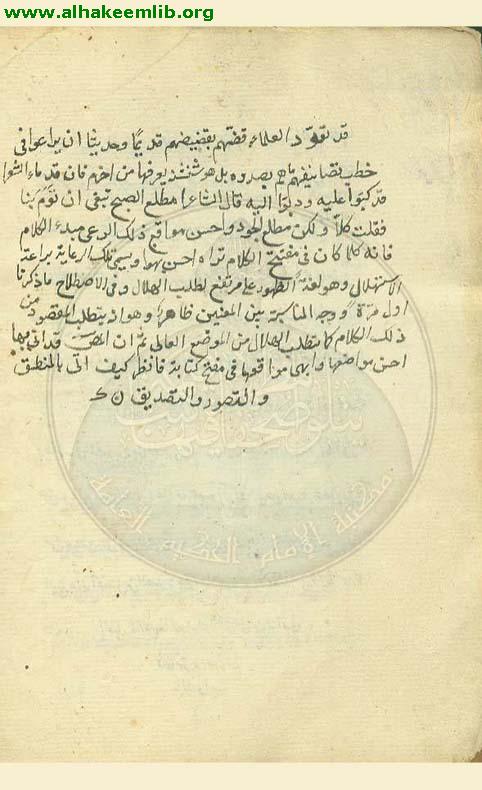 www.alhakeemlib.org
قد تعوّد العلماء قضّهم بقضيضهم قديمًا وحديثا ان يراعوا في
خطب تصانيفهم ما هم بصدده بل هو شنشنة يعرفها من اخزم فان قدماء الشعرا
قد كبّوا عليه ودلّوا اليه قال الشاعر امطلع الصبح تبغى ان تؤم بنا
فقلت كلّا ولكن مطلع الجود واحسن مواقع ذلك الرعى مبدء الكلام
فانه كلما كان فى مفتتح الكلام تراه احسن بهوا ويسمى تلك الرعاية براعة
الاستهلال وهو لغة الظهور على مرتفع لطلب الهلال وفى الاصطلاح ما ذكرنا
اول مرّة ووجه المناسبة بين المعنيين ظاهر وهو انه يتطلب المقصود من
ذلك الكلام كما يتطلب الهلال من الموضع العالى ثم ان المصـ قد اتى بها
احسن مواضعها وابهى مواقعها فى مفتتح كتابه فانظر كيف اتى بالمنطق
والتصور والتصديق
مكتبة الإمام الحكيم العامة